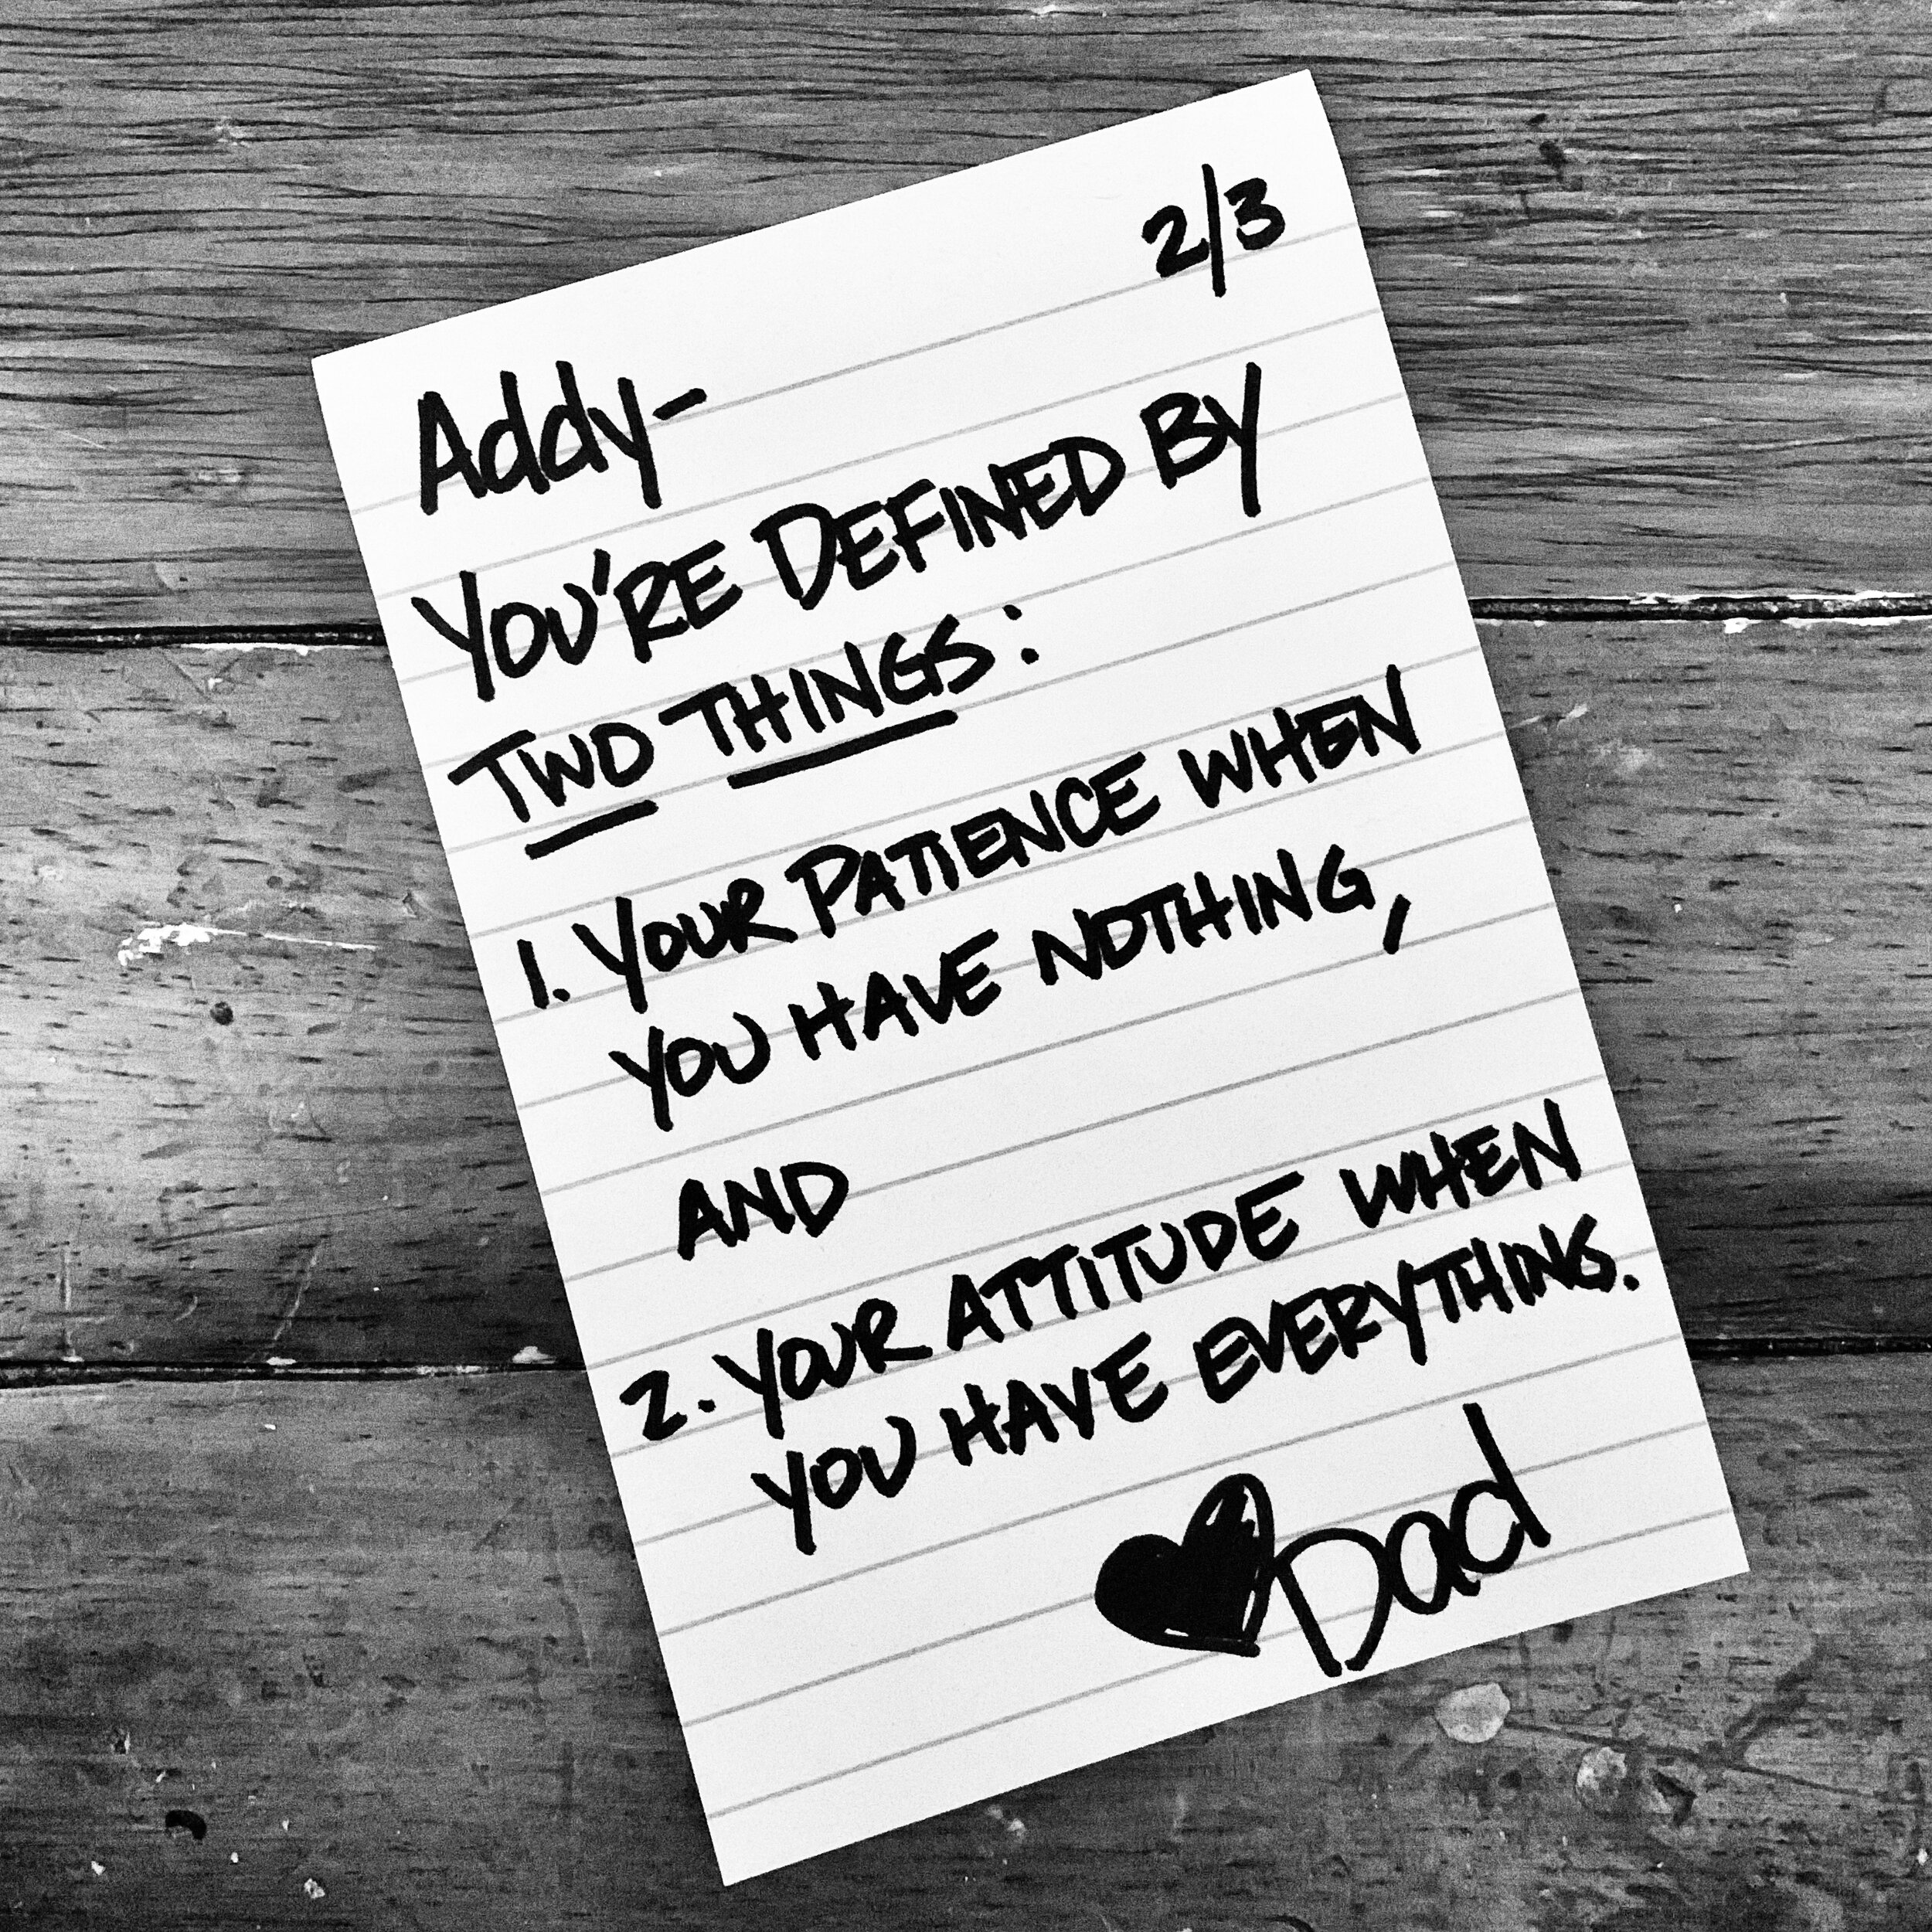 2/3
Addy-
YOU'RE DEFINED BY
TWO THINGS:
1. YOUR PATIENCE WHEN
YOU HAVE NOTHING,
AND
2. YOUR ATTITUDE WHEN
YOU HAVE EVERYTHING.
♥Dad